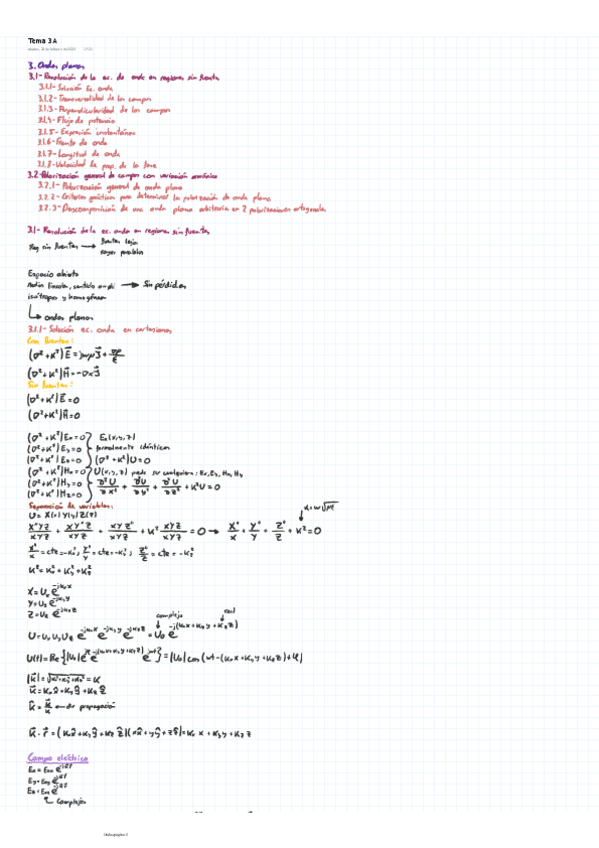 Tema 3A
3. Ondas planas
3.1- Resolución de la ec. de onda en regiones sin fuente
3.1.1- Solución Ec. onda
3.1.2- Transversalidad de los campos
3.1.3- Perpendicularidad de los campos
3.1.4- Flujo de potencia
3.1.5- Expresión instantánea
3.1.6- Frente de onda
3.1.7- Longitud de onda
3.1.8- Velocidad de prop. de la fase
3.2- Polarización general de campos con variación armónica
3.2.1- Polarización general de onda plana
3.2.2- Criterios prácticos para determinar la polarización de onda plana
3.2.3- Descomposición de una onda plana arbitraria en 2 polarizaciones ortogonales
3.1- Resolución de la ec. onda en regiones sin fuentes
Reg sin fuentes → fuentes lejos
Espacio abierto
→ Sin pérdidas
isótropos y homogéneo
↳ ondas planas
3.1.1- Solución ec. onda en cartesianas
Con fuentes:
(∇² + K²)H⃗ = -∇×J⃗
Sin fuentes:
(∇² + K²)E⃗ = 0
(∇² + K²)H⃗ = 0
(∇² + K²)Ex = 0 Ex(x,y,z)
(∇² + K²)Ey = 0 formalmente idénticas
(∇² + K²)Ez = 0 (∇² + K²)U = 0
(∇² + K²)Hx = 0 U(x,y,z) puede ser cualquiera: Ex, Ey, Hx, Hy
(∇² + K²)Hy = 0 ∂²U/∂x² + ∂²U/∂y² + ∂²U/∂z² + K²U = 0
(∇² + K²)Hz = 0
Separación de variables:
U = X(x) Y(y) Z(z)
K = w√με
X''YZ/XYZ + XY''Z/XYZ + XYZ''/XYZ + K² XYZ/XYZ = 0 → X''/X + Y''/Y + Z''/Z + K² = 0
X''/X = cte = -Kx²; Y''/Y = cte = -Ky²; Z''/Z = cte = -Kz²
K² = Kx² + Ky² + Kz²
X = Ux e^-jKxX
Y = Uy e^-jKyY
Z = Uz e^-jKzZ
complejo real
U = UxUyUz e^-jKxX e^-jKyY e^-jKzZ = U0 e^-j(KxX+KyY+KzZ)
U(t) = Re{|U0| e^jφ e^-j(KxX+KyY+KzZ) e^jwt} = |U0| cos(wt - (KxX + KyY + KzZ) + φ)
|K⃗| = √Kx²+Ky²+Kz² = K
K⃗ = Kx x̂ + Ky ŷ + Kz ẑ
K⃗ · r⃗ = (Kx x̂ + Ky ŷ + Kz ẑ)(x x̂ + y ŷ + z ẑ) = Kx x + Ky y + Kz z
Campo eléctrico
↳ Complejos